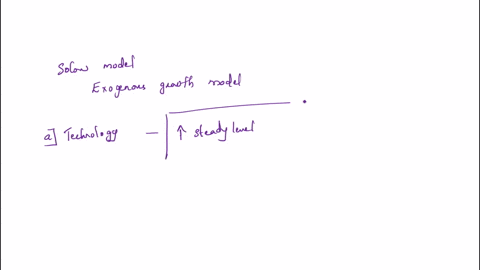 Solow model
Exogenous growth model
a] Technology — ↑ steady level